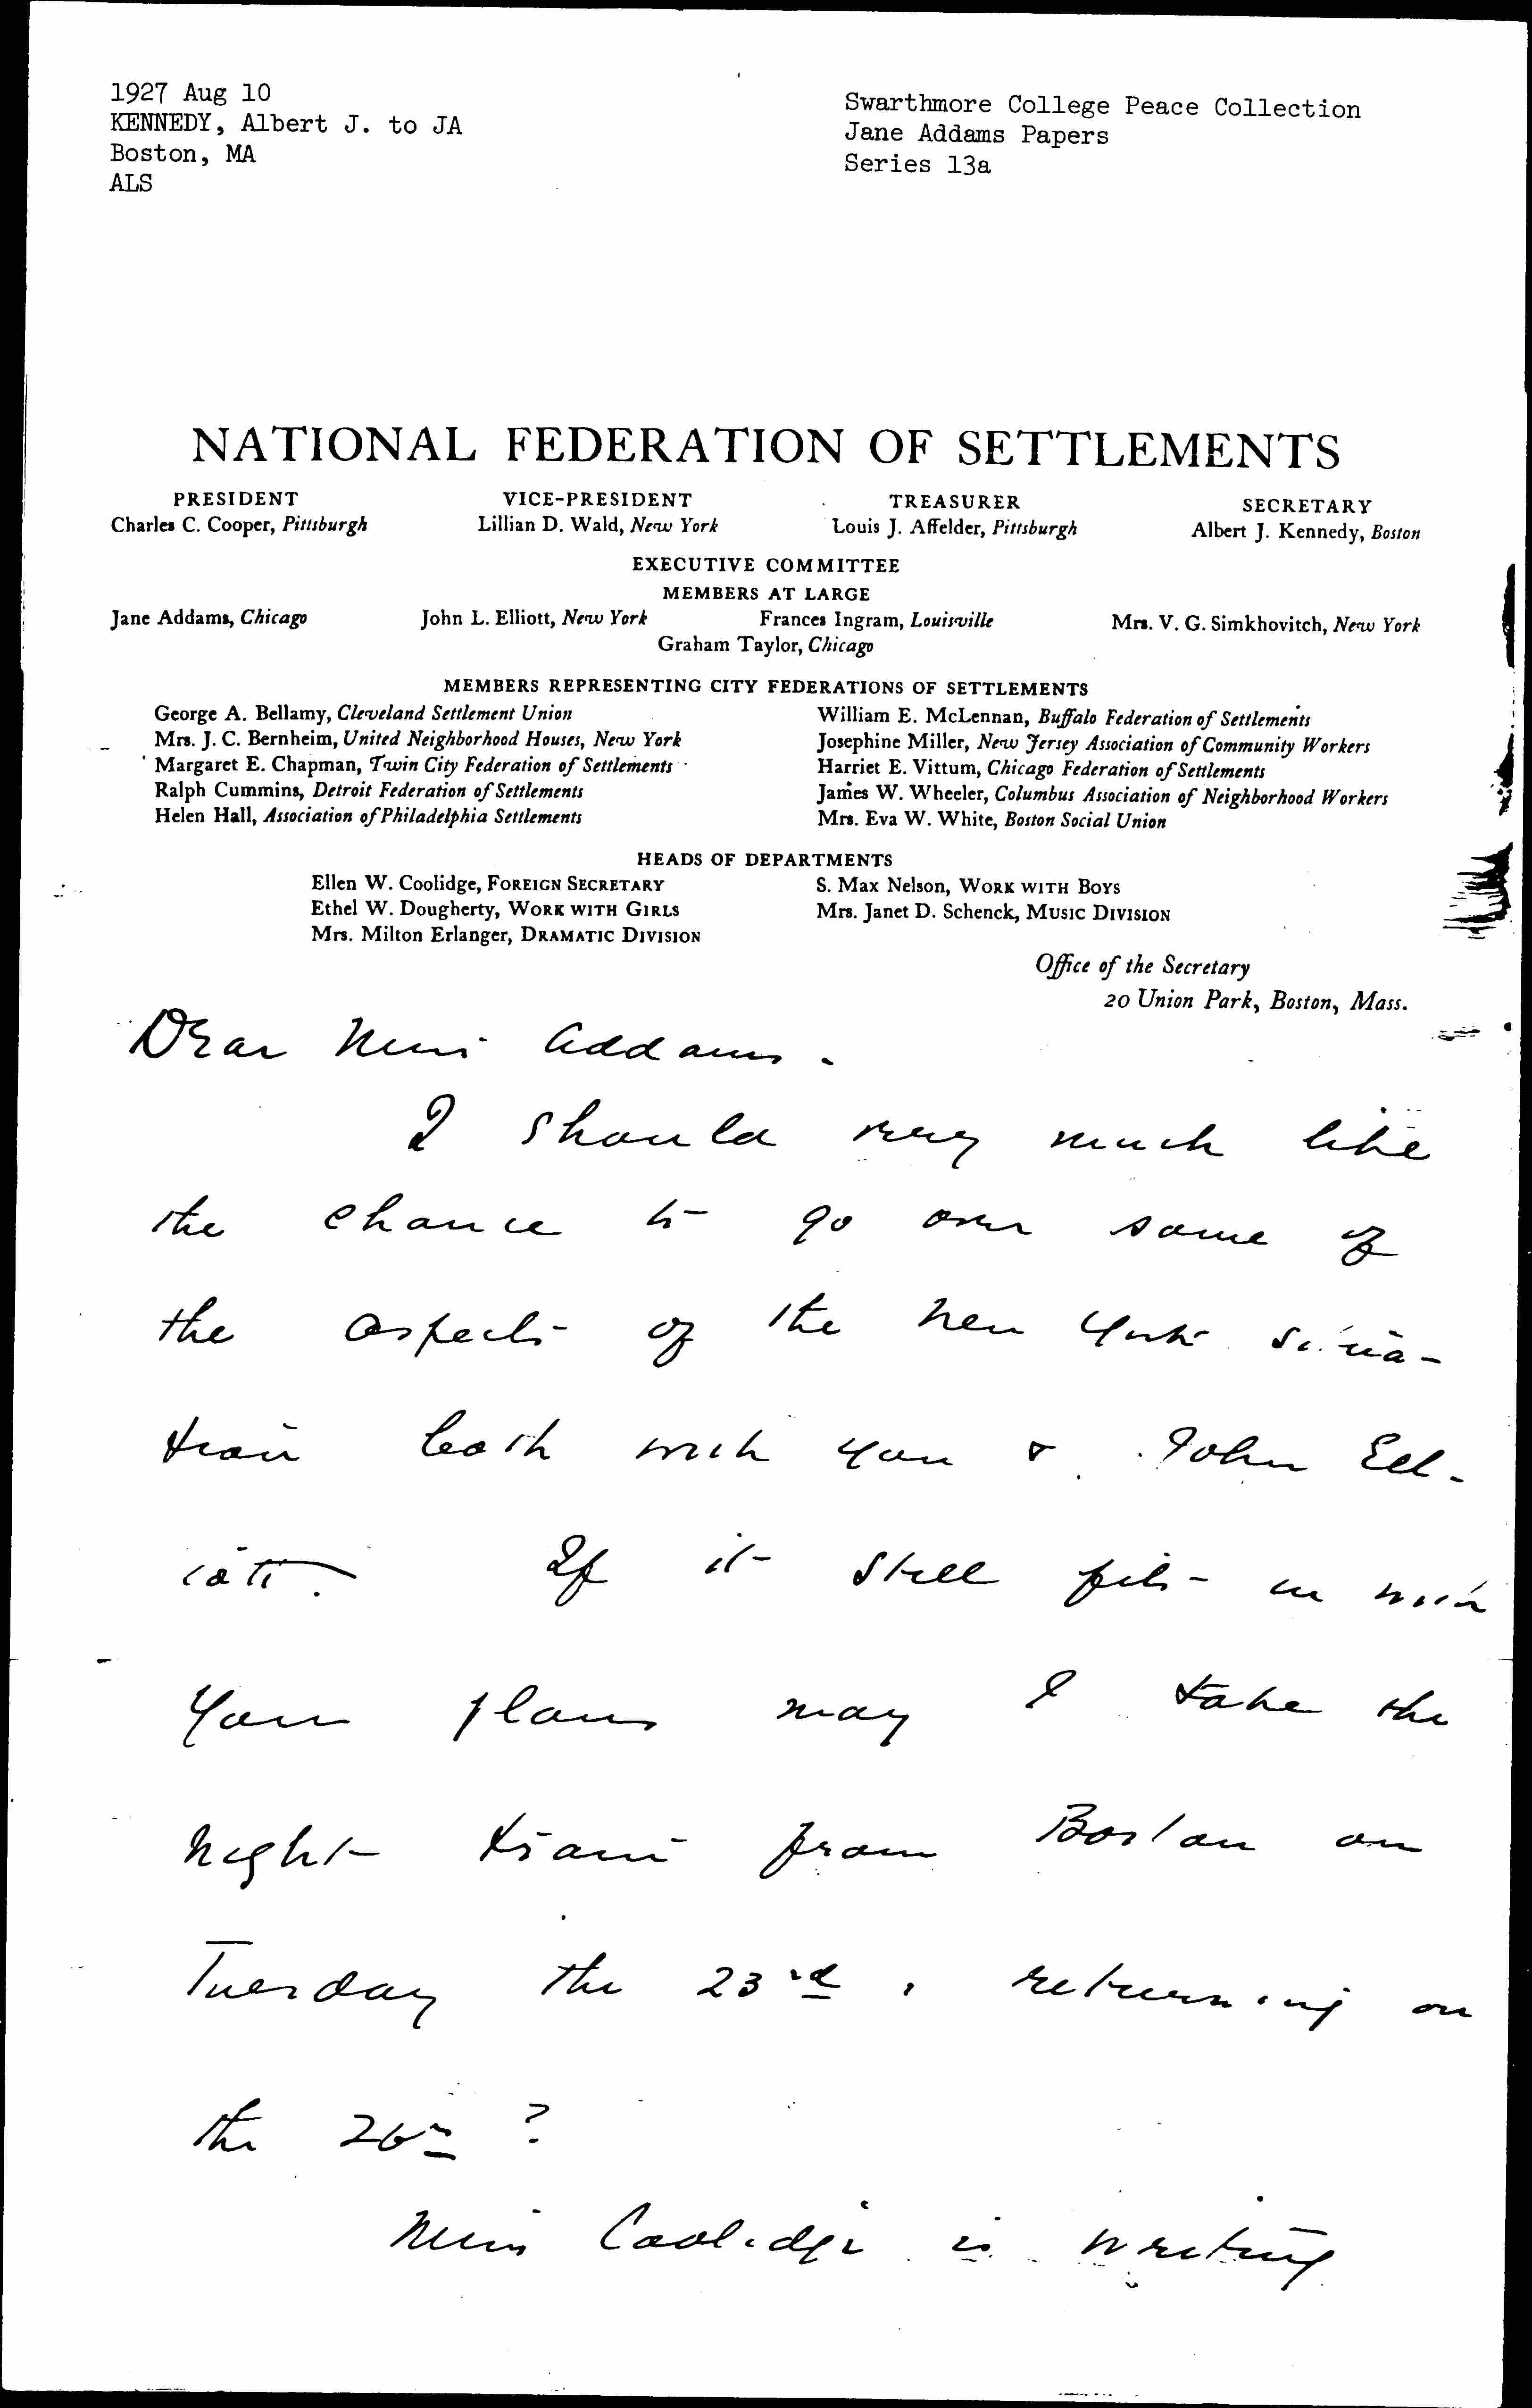 1927 Aug 10
KENNEDY, Albert J. to JA
Boston, MA
ALS
Swarthmore College Peace Collection
Jane Addams Papers
Series 13a
NATIONAL FEDERATION OF SETTLEMENTS
PRESIDENT
Charles C. Cooper, Pittsburgh
VICE-PRESIDENT
Lillian D. Wald, New York
TREASURER
Louis J. Affelder, Pittsburgh
SECRETARY
Albert J. Kennedy, Boston
EXECUTIVE COMMITTEE
MEMBERS AT LARGE
Jane Addams, Chicago John L. Elliott, New York Frances Ingram, Louisville Mrs. V. G. Simkhovitch, New York
Graham Taylor, Chicago
MEMBERS REPRESENTING CITY FEDERATIONS OF SETTLEMENTS
George A. Bellamy, Cleveland Settlement Union
Mrs. J. C. Bernheim, United Neighborhood Houses, New York
Margaret E. Chapman, Twin City Federation of Settlements
Ralph Cummins, Detroit Federation of Settlements
Helen Hall, Association of Philadelphia Settlements
William E. McLennan, Buffalo Federation of Settlements
Josephine Miller, New Jersey Association of Community Workers
Harriet E. Vittum, Chicago Federation of Settlements
James W. Wheeler, Columbus Association of Neighborhood Workers
Mrs. Eva W. White, Boston Social Union
HEADS OF DEPARTMENTS
Ellen W. Coolidge, FOREIGN SECRETARY
Ethel W. Dougherty, WORK WITH GIRLS
Mrs. Milton Erlanger, DRAMATIC DIVISION
S. Max Nelson, WORK WITH BOYS
Mrs. Janet D. Schenck, MUSIC DIVISION
Office of the Secretary
20 Union Park, Boston, Mass.
Dear Miss Addams.
I should very much like
the chance to go over some of
the aspects of the New York situa-
tion both with you & John Ell-
iott. If it still fits in with
your plans may I take the
night train from Boston on
Tuesday the 23rd, returning on
the 26th ?
Miss Coolidge is writing